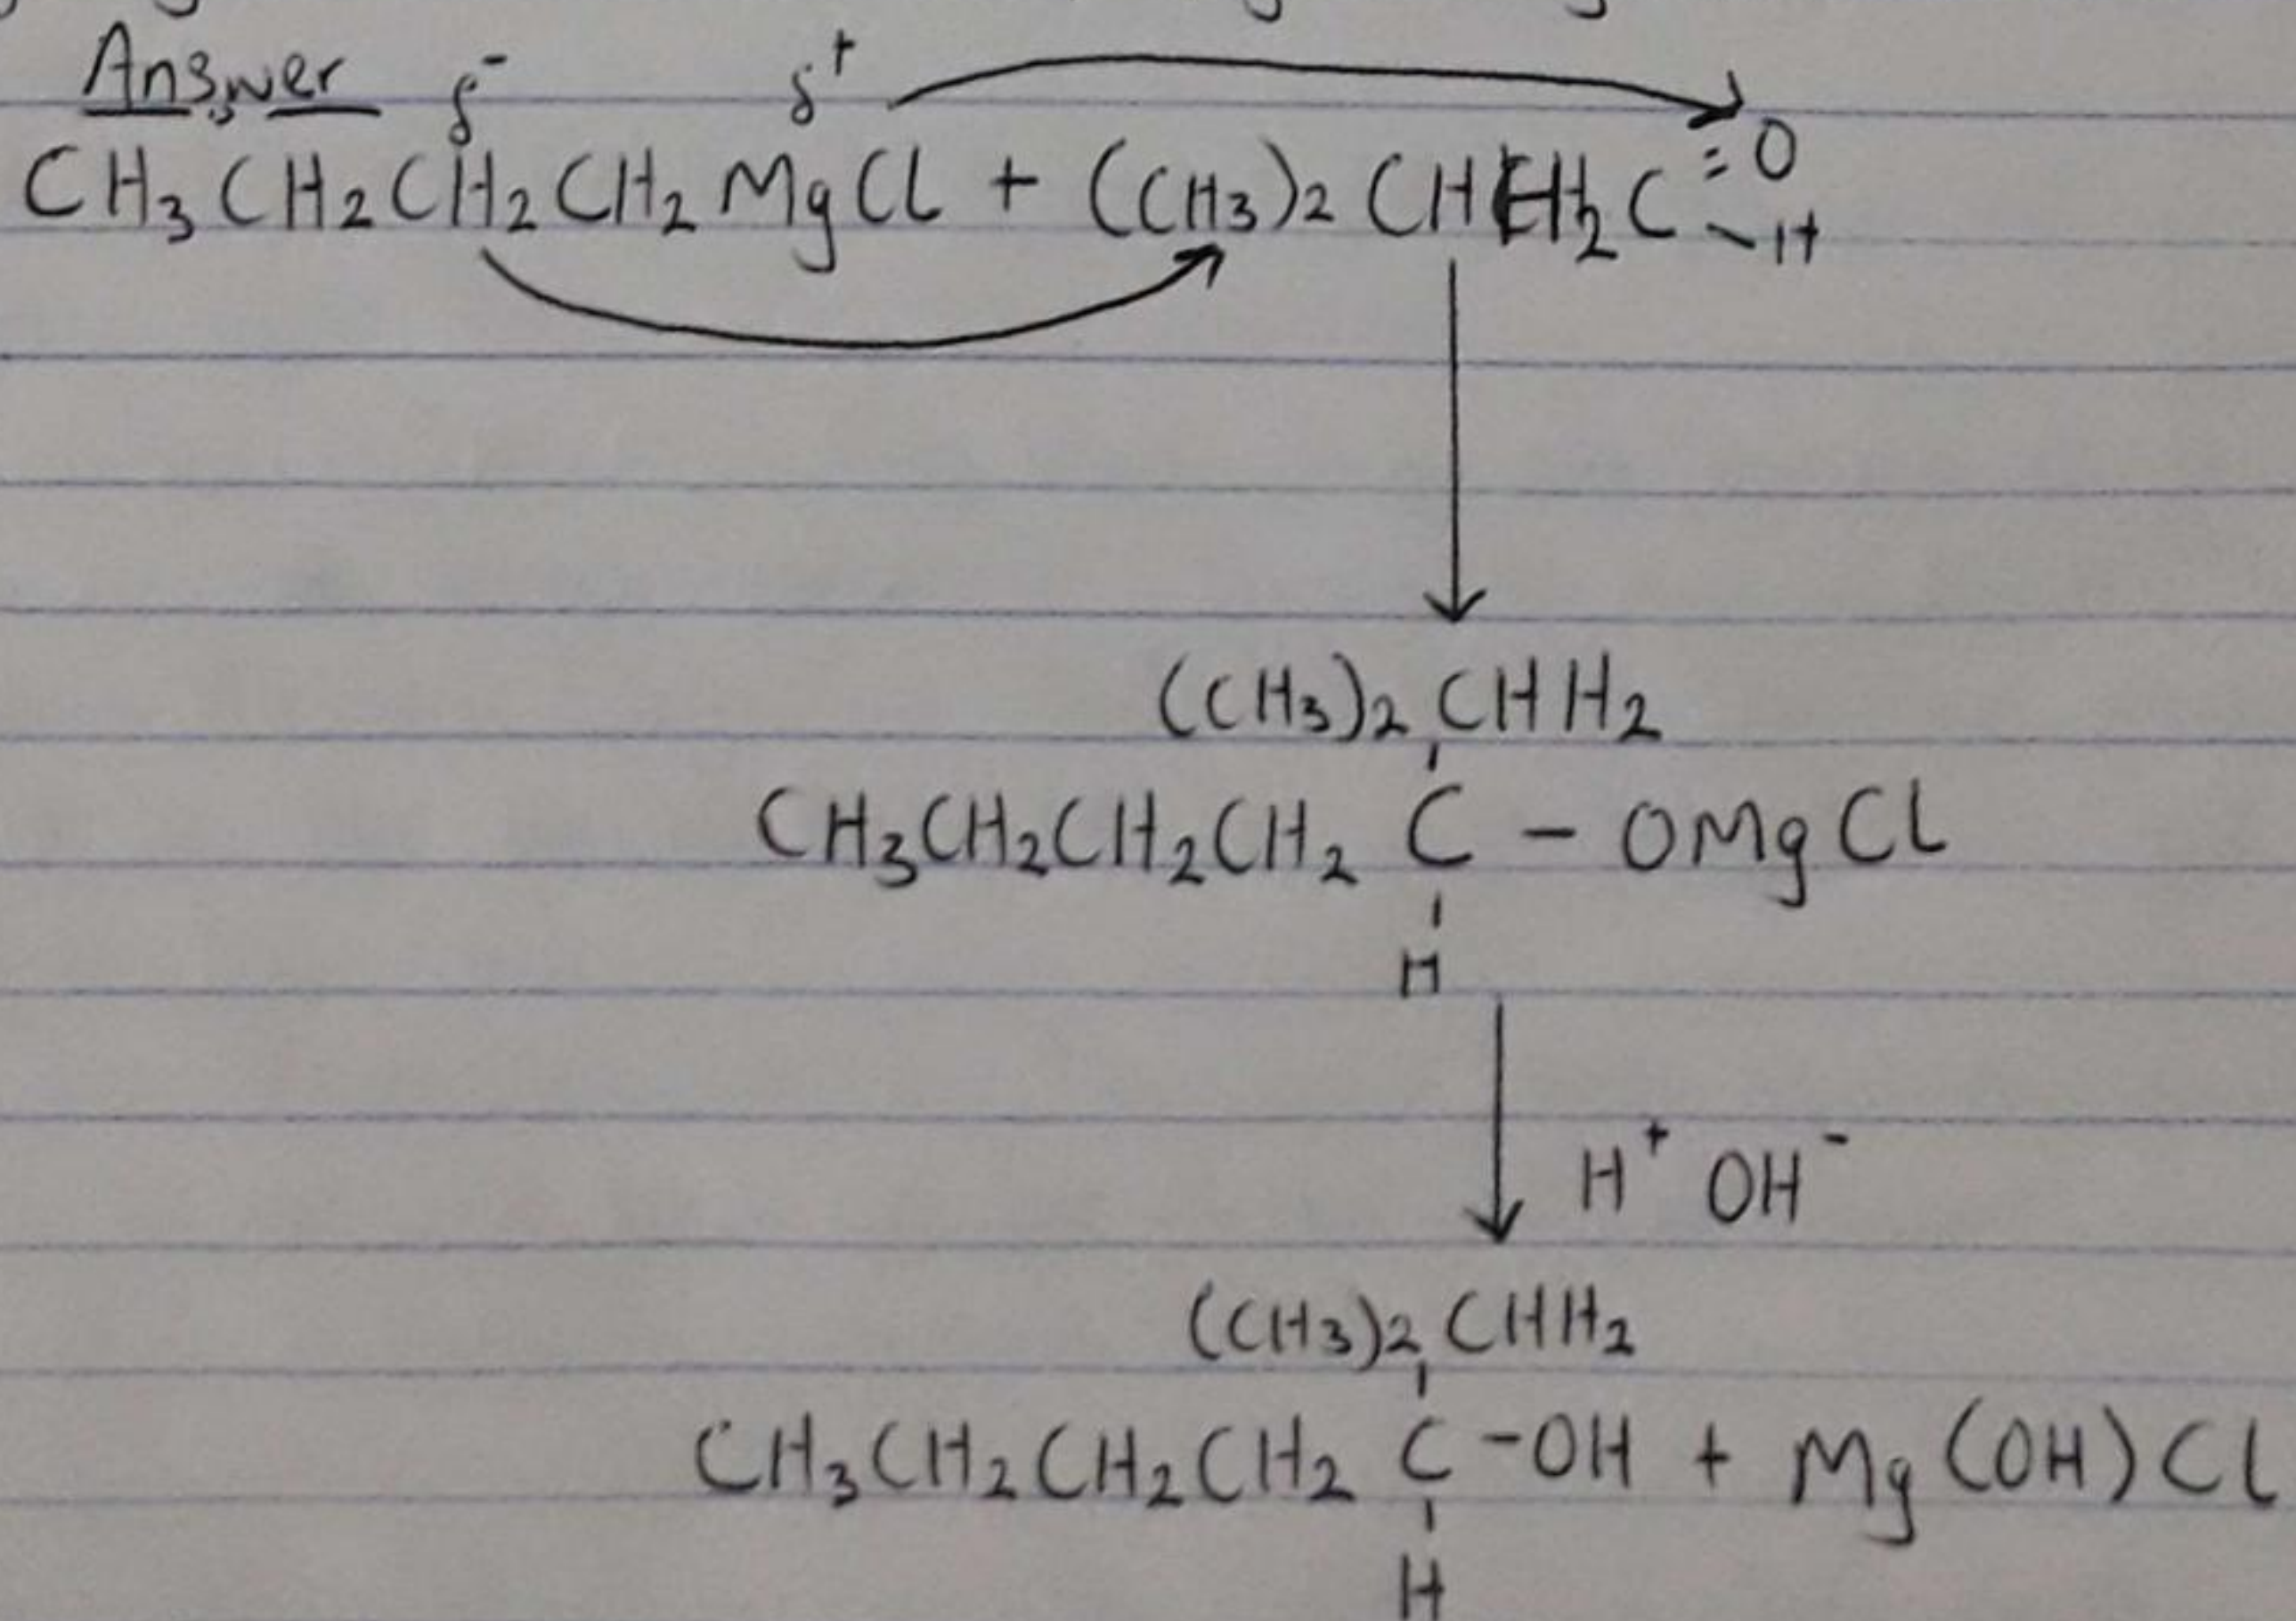 Answer
δ⁻ δ⁺
CH₃CH₂CH₂CH₂MgCl + (CH₃)₂CH H₂C=O
-H
(CH₃)₂CHH₂
CH₃CH₂CH₂CH₂C-OMgCl
H
H⁺ OH⁻
(CH₃)₂CHH₂
CH₃CH₂CH₂CH₂C-OH + Mg(OH)Cl
H